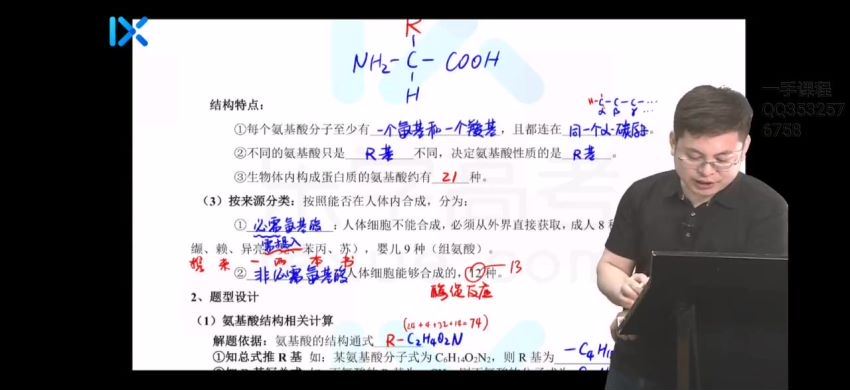 IX
R
NH₂-C-COOH
H
结构特点：
H-C-C-C-...
α β γ ...
①每个氨基酸分子至少有一个氨基和一个羧基，且都连在同一个α-碳原子。
②不同的氨基酸只是R基不同，决定氨基酸性质的是R基。
③生物体内构成蛋白质的氨基酸约有21种。
（3）按来源分类：按照能否在人体内合成，分为：
①必需氨基酸：人体细胞不能合成，必须从外界直接获取，成人8
需摄入
缬、赖、异亮、苯丙、苏），婴儿9种（组氨酸）。
携来一两本书
②非必需氨基酸人体细胞能够合成的，12种。13
2、题型设计
（1）氨基酸结构相关计算
(24+4+32+14=74)
解题依据：氨基酸的结构通式R-C₂H₄O₂N
①知总式推R基 如：某氨基酸分子式为C₆H₁₄O₂N₂，则R基为-C₄H
一手课程
QQ353257
6758